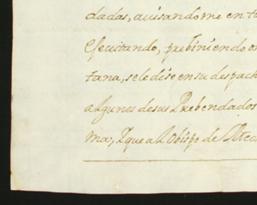 dadas, avisandome en to
efecutando, prebiniendo os
tana, sele dise en su despach
algunos desus Prebendados
mas, Y que al Obispo de